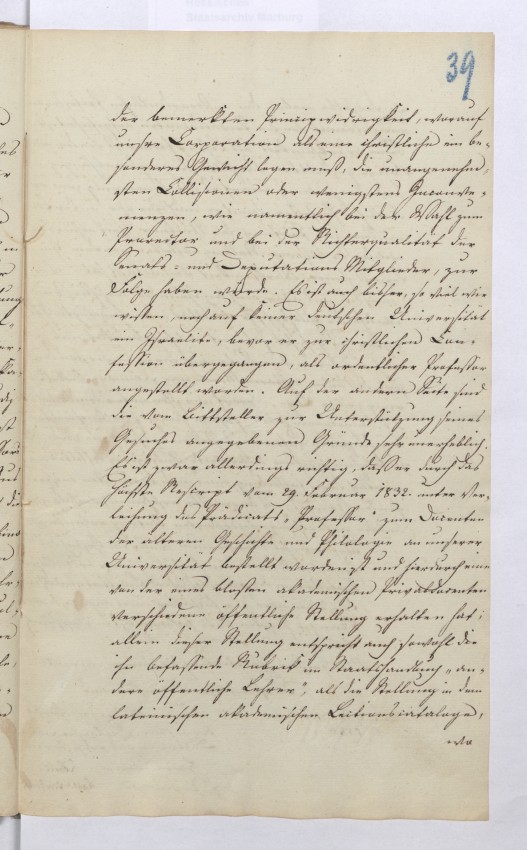 39
der bemerkten Principwidrigkeit, worauf
unsre Corporation als eine christliche ein be-
sonderes Gewicht legen muß, die unangenehm-
sten Collisionen oder wenigstens Inconve-
nienzen, wie namentlich bei der Wahl zum
Prorector und bei der Richterqualität der
Senats- und Deputations Mitglieder, zur
Folge haben würde. Es ist auch bisher, so viel wir
wissen, noch auf keiner deutschen Universität
ein Israelite, bevor er zur christlichen Con-
fession übergegangen, als ordentlicher Professor
angestellt worden. Auf der andern Seite sind
die vom Bittsteller zur Unterstützung seines
Gesuches angegebenen Gründe sehr unerheblich.
Es ist zwar allerdings richtig, daß er durch das
höchste Rescript vom 29. Februar 1832 unter Ver-
leihung des Prädicats „Professor" zum Docenten
der älteren Geschichte und Philologie an unserer
Universität bestellt worden ist und hierdurch eine
von der eines bloßen akademischen Privatdocenten
verschiedene öffentliche Stellung erhalten hat;
allein dieser Stellung entspricht auch sowohl die
ihn befassende Rubrik im Staatshandbuch „an-
dere öffentliche Lehrer", als die Stellung in dem
lateinischen akademischen Lectionscataloge,
wo